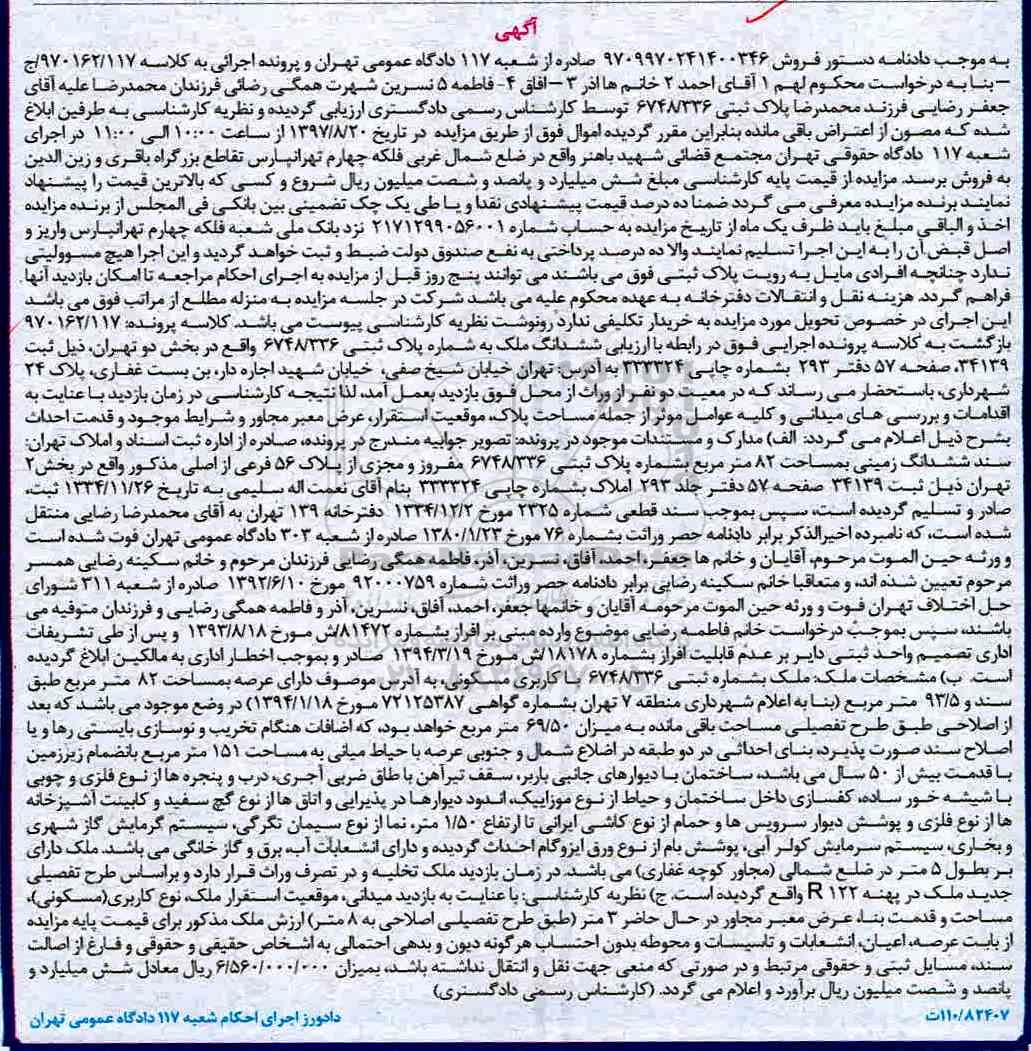 آگهی
به موجب دادنامه دستور فروش ۹۷۰۹۹۷۰۲۴۱۴۰۰۳۴۶ صادره از شعبه ۱۱۷ دادگاه عمومی تهران و پرونده اجرائی به کلاسه ۹۷۰۱۶۲/۱۱۷/ج
–بنا به درخواست محکوم لهم ۱ آقای احمد ۲ خانم ها اذر ۳ –افاق ۴- فاطمه ۵ نسرین شهرت همگی رضائی فرزندان محمدرضا علیه آقای
جعفر رضایی فرزند محمدرضا پلاک ثبتی ۶۷۴۸/۳۳۶ توسط کارشناس رسمی دادگستری ارزیابی گردیده و نظریه کارشناسی به طرفین ابلاغ
شده که مصون از اعتراض باقی مانده بنابراین مقرر گردیده اموال فوق از طریق مزایده در تاریخ ۱۳۹۷/۸/۲۰ از ساعت ۱۰:۰۰ الی ۱۱:۰۰ در اجرای
شعبه ۱۱۷ دادگاه حقوقی تهران مجتمع قضائی شهید باهنر واقع در ضلع شمال غربی فلکه چهارم تهرانپارس تقاطع بزرگراه باقری و زین الدین
به فروش برسد. مزایده از قیمت پایه کارشناسی مبلغ شش میلیارد و پانصد و شصت میلیون ریال شروع و کسی که بالاترین قیمت را پیشنهاد
نمایند برنده مزایده معرفی می گردد ضمنا ده درصد قیمت پیشنهادی نقدا و یا طی یک چک تضمینی بین بانکی فی المجلس از برنده مزایده
اخذ و الباقی مبلغ باید ظرف یک ماه از تاریخ مزایده به حساب شماره ۲۱۷۱۲۹۹۰۵۶۰۰۱ نزد بانک ملی شعبه فلکه چهارم تهرانپارس واریز و
اصل قبض آن را به این اجرا تسلیم نمایند والا ده درصد پرداختی به نفع صندوق دولت ضبط و ثبت خواهد گردید و این اجرا هیچ مسوولیتی
ندارد چنانچه افرادی مایل به رویت پلاک ثبتی فوق می باشند می توانند پنج روز قبل از مزایده به اجرای احکام مراجعه تا امکان بازدید آنها
فراهم گردد. هزینه نقل و انتقالات دفترخانه به عهده محکوم علیه می باشد شرکت در جلسه مزایده به منزله مطلع از مراتب فوق می باشد
این اجرای در خصوص تحویل مورد مزایده به خریدار تکلیفی ندارد رونوشت نظریه کارشناسی پیوست می باشد. کلاسه پرونده: ۹۷۰۱۶۲/۱۱۷
بازگشت به کلاسه پرونده اجرایی فوق در رابطه با ارزیابی ششدانگ ملک به شماره پلاک ثبتی ۶۷۴۸/۳۳۶ واقع در بخش دو تهران، ذیل ثبت
۳۴۱۳۹، صفحه ۵۷ دفتر ۲۹۳ بشماره چاپی ۳۳۳۳۲۴ به آدرس: تهران خیابان شیخ صفی، خیابان شهید اجاره دار، بن بست غفاری، پلاک ۲۴
شهرداری، باستحضار می رساند که در معیت دو نفر از وراث از محل فوق بازدید بعمل آمد، لذا نتیجه کارشناسی در زمان بازدید با عنایت به
اقدامات و بررسی های میدانی و کلیه عوامل موثر از جمله مساحت پلاک، موقعیت استقرار، عرض معبر مجاور و شرایط موجود و قدمت احداث
بشرح ذیل اعلام می گردد: الف) مدارک و مستندات موجود در پرونده: تصویر جوابیه مندرج در پرونده، صادره از اداره ثبت اسناد و املاک تهران:
سند ششدانگ زمینی بمساحت ۸۲ متر مربع بشماره پلاک ثبتی ۶۷۴۸/۳۳۶ مفروز و مجزی از پلاک ۵۶ فرعی از اصلی مذکور واقع در بخش۲
تهران ذیل ثبت ۳۴۱۳۹ صفحه ۵۷ دفتر جلد ۲۹۳ املاک بشماره چاپی ۳۳۳۳۲۴ بنام آقای نعمت اله سلیمی به تاریخ ۱۳۳۴/۱۱/۲۶ ثبت،
صادر و تسلیم گردیده است، سپس بموجب سند قطعی شماره ۲۳۲۵ مورخ ۱۳۳۴/۱۲/۲ دفترخانه ۱۳۹ تهران به آقای محمدرضا رضایی منتقل
شده است، که نامبرده اخیرالذکر برابر دادنامه حصر وراثت بشماره ۷۶ مورخ ۱۳۸۰/۱/۲۳ صادره از شعبه ۳۰۳ دادگاه عمومی تهران فوت شده است
و ورثه حین الموت مرحوم، آقایان و خانم ها جعفر، احمد، آفاق، نسرین، آذر، فاطمه همگی رضایی فرزندان مرحوم و خانم سکینه رضایی همسر
مرحوم تعیین شده اند، و متعاقبا خانم سکینه رضایی برابر دادنامه حصر وراثت شماره ۹۲۰۰۰۷۵۹ مورخ ۱۳۹۲/۶/۱۰ صادره از شعبه ۳۱۱ شورای
حل اختلاف تهران فوت و ورثه حین الموت مرحومه آقایان و خانمها جعفر، احمد، آفاق، نسرین، آذر و فاطمه همگی رضایی و فرزندان متوفیه می
باشند، سپس بموجب درخواست خانم فاطمه رضایی موضوع وارده مبنی بر افراز بشماره ۸۱۴۷۲/ش مورخ ۱۳۹۳/۸/۱۸ و پس از طی تشریفات
اداری تصمیم واحد ثبتی دایر بر عدم قابلیت افراز بشماره ۱۸۱۷۸/ش مورخ ۱۳۹۴/۳/۱۹ صادر و بموجب اخطار اداری به مالکین ابلاغ گردیده
است. ب) مشخصات ملک: ملک بشماره ثبتی ۶۷۴۸/۳۳۶ با کاربری مسکونی، به آدرس موصوف دارای عرصه بمساحت ۸۲ متر مربع طبق
سند و ۹۳/۵ متر مربع (بنا به اعلام شهرداری منطقه ۷ تهران بشماره گواهی ۷۲۱۲۵۳۸۷ مورخ ۱۳۹۴/۱/۱۸) در وضع موجود می باشد که بعد
از اصلاحی طبق طرح تفصیلی مساحت باقی مانده به میزان ۶۹/۵۰ متر مربع خواهد بود، که اضافات هنگام تخریب و نوسازی بایستی رها و یا
اصلاح سند صورت پذیرد، بنای احداثی در دو طبقه در اضلاع شمال و جنوبی عرصه با حیاط میانی به مساحت ۱۵۱ متر مربع بانضمام زیرزمین
با قدمت بیش از ۵۰ سال می باشد، ساختمان با دیوارهای جانبی باربر، سقف تیرآهن با طاق ضربی آجری، درب و پنجره ها از نوع فلزی و چوبی
با شیشه خور ساده، کفسازی داخل ساختمان و حیاط از نوع موزاییک، اندود دیوارها در پذیرایی و اتاق ها از نوع گچ سفید و کابینت آشپزخانه
ها از نوع فلزی و پوشش دیوار سرویس ها و حمام از نوع کاشی ایرانی تا ارتفاع ۱/۵۰ متر، نما از نوع سیمان تگرگی، سیستم گرمایش گاز شهری
و بخاری، سیستم سرمایش کولر آبی، پوشش بام از نوع ورق ایزوگام احداث گردیده و دارای انشعابات آب، برق و گاز خانگی می باشد. ملک دارای
بر بطول ۵ متر در ضلع شمالی (مجاور کوچه غفاری) می باشد. در زمان بازدید ملک تخلیه و در تصرف وراث قرار دارد و براساس طرح تفصیلی
جدید ملک در پهنه R ۱۲۲ واقع گردیده است. ج) نظریه کارشناسی: با عنایت به بازدید میدانی، موقعیت استقرار ملک، نوع کاربری(مسکونی)،
مساحت و قدمت بنا، عرض معبر مجاور در حال حاضر ۳ متر (طبق طرح تفصیلی اصلاحی به ۸ متر) ارزش ملک مذکور برای قیمت پایه مزایده
از بابت عرصه، اعیان، انشعابات و تاسیسات و محوطه بدون احتساب هرگونه دیون و بدهی احتمالی به اشخاص حقیقی و حقوقی و فارغ از اصالت
سند، مسایل ثبتی و حقوقی مرتبط و در صورتی که منعی جهت نقل و انتقال نداشته باشد، بمیزان ۶/۵۶۰/۰۰۰/۰۰۰ ریال معادل شش میلیارد و
پانصد و شصت میلیون ریال برآورد و اعلام می گردد. (کارشناس رسمی دادگستری)
۱۱۰/۸۲۴۰۷ت دادورز اجرای احکام شعبه ۱۱۷ دادگاه عمومی تهران